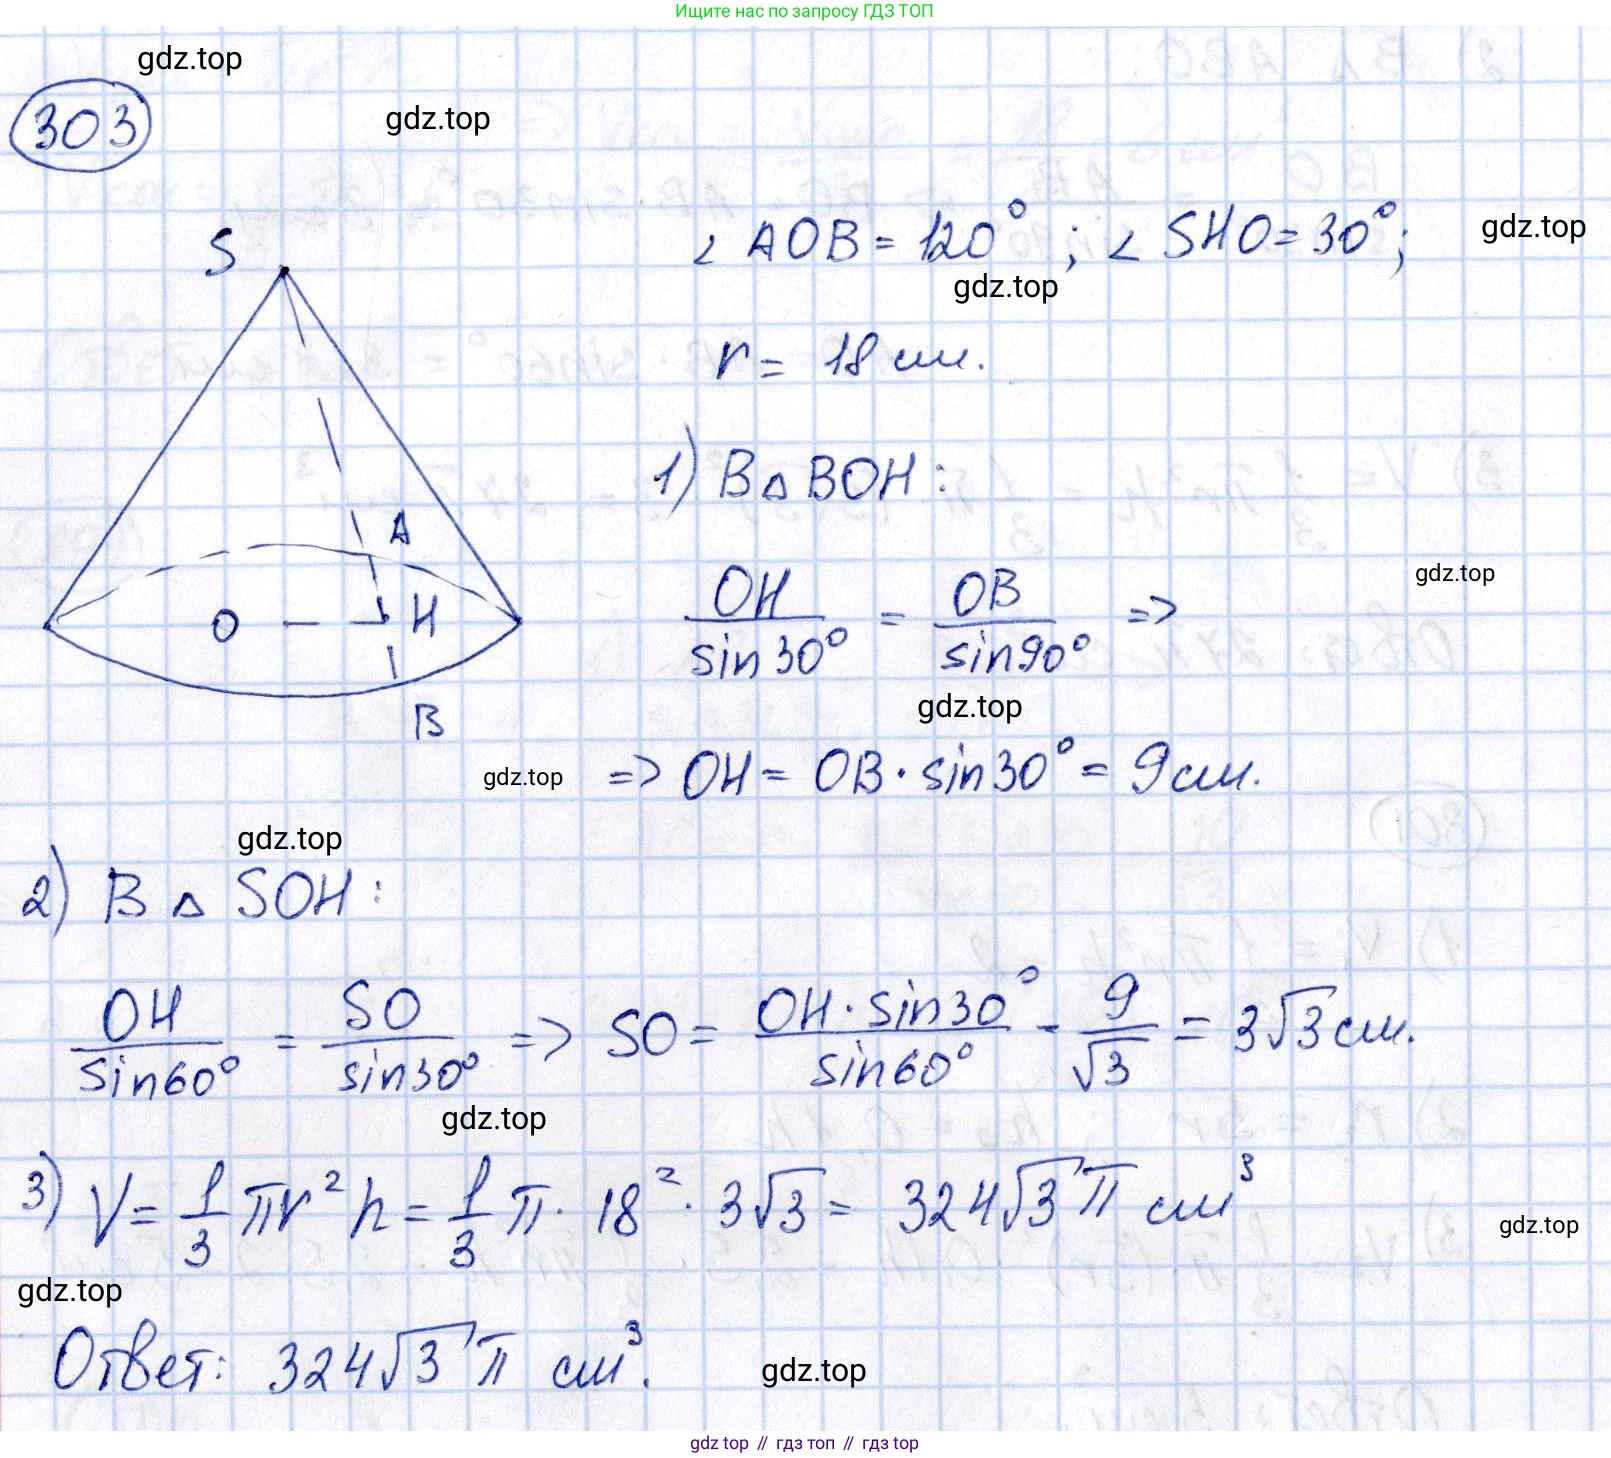 Ищите нас по запросу ГДЗ ТОП
gdz.top
303
gdz.top
S
∠ AOB = 120°; ∠ SHO = 30°;
gdz.top
gdz.top
r = 18 см.
1) В △ BOH:
A
O
H
B
OH/sin30° = OB/sin90° =>
gdz.top
gdz.top
=> OH = OB · sin30° = 9 см.
gdz.top
gdz.top
2) В △ SOH:
OH/sin60° = SO/sin30° => SO = OH · sin30°/sin60° = 9/√3 = 3√3 см.
gdz.top
3) V = 1/3 πr² h = 1/3 π · 18² · 3√3 = 324√3 π см³
gdz.top
gdz.top
Ответ: 324√3 π см³.
gdz.top
gdz top // гдз топ // гдз top